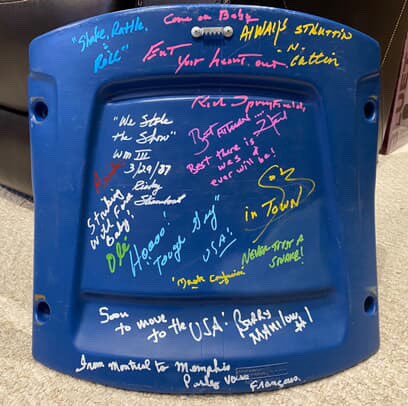 Come on Baby
"Shake, Rattle,
&
Roll"
ALWAYS STRUTTIN
N.
Cuttin
Eat Your Heart out
Rick Springfield,
"We Stole
the Show"
WM III
3/29/87
Ricky
Steamboat
Best there is
was &
ever will be!
Striking
Will Find
Baby!
Olé
Hoooo!
Tough Guy
USA!
in TOWN
NEVER TRUST A
SNAKE!
Soon
to move
to the USA!
BARRY
MANILOW
#1
From Montreal to Memphis
Parlez Vous
Français